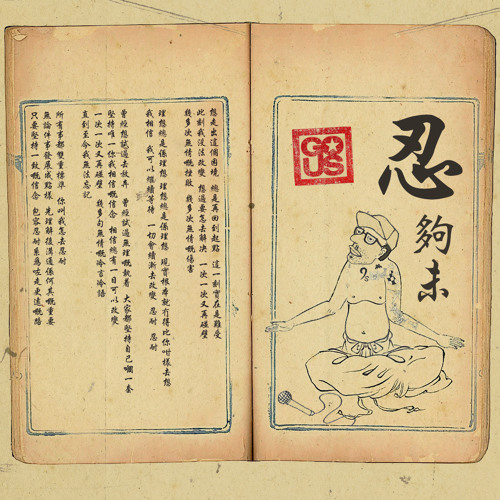 忍
夠未
想走出這個困境 總是再回到起點 這一刻實在是難受
此刻我沒法改變 想過要怎去解決 一次一次又再碰壁
幾多次無情的挫敗 幾多次無情嘅傷害
理想總是係理想 理想總是係理想 現實根本就冇得比你咁樣去想
我相信 我可以繼續等待 一切會續漸去改變 忍耐 忍耐
曾經想試過去放弃 曾經試過無理嘅執着 大家都堅持自己嗰一套
堅持唯一你我相信嘅信念 相信總有一日可以改變
一次一次又再碰壁 幾多句無情嘅冷言冷語
直到至今我無法忘記
所有事都雙重標準 你叫我怎去忍耐
無論件事發展成點樣 先理解後溝通係何其嘅重要
只要堅持一致嘅信念 包容忍耐系為咗走更遠嘅路